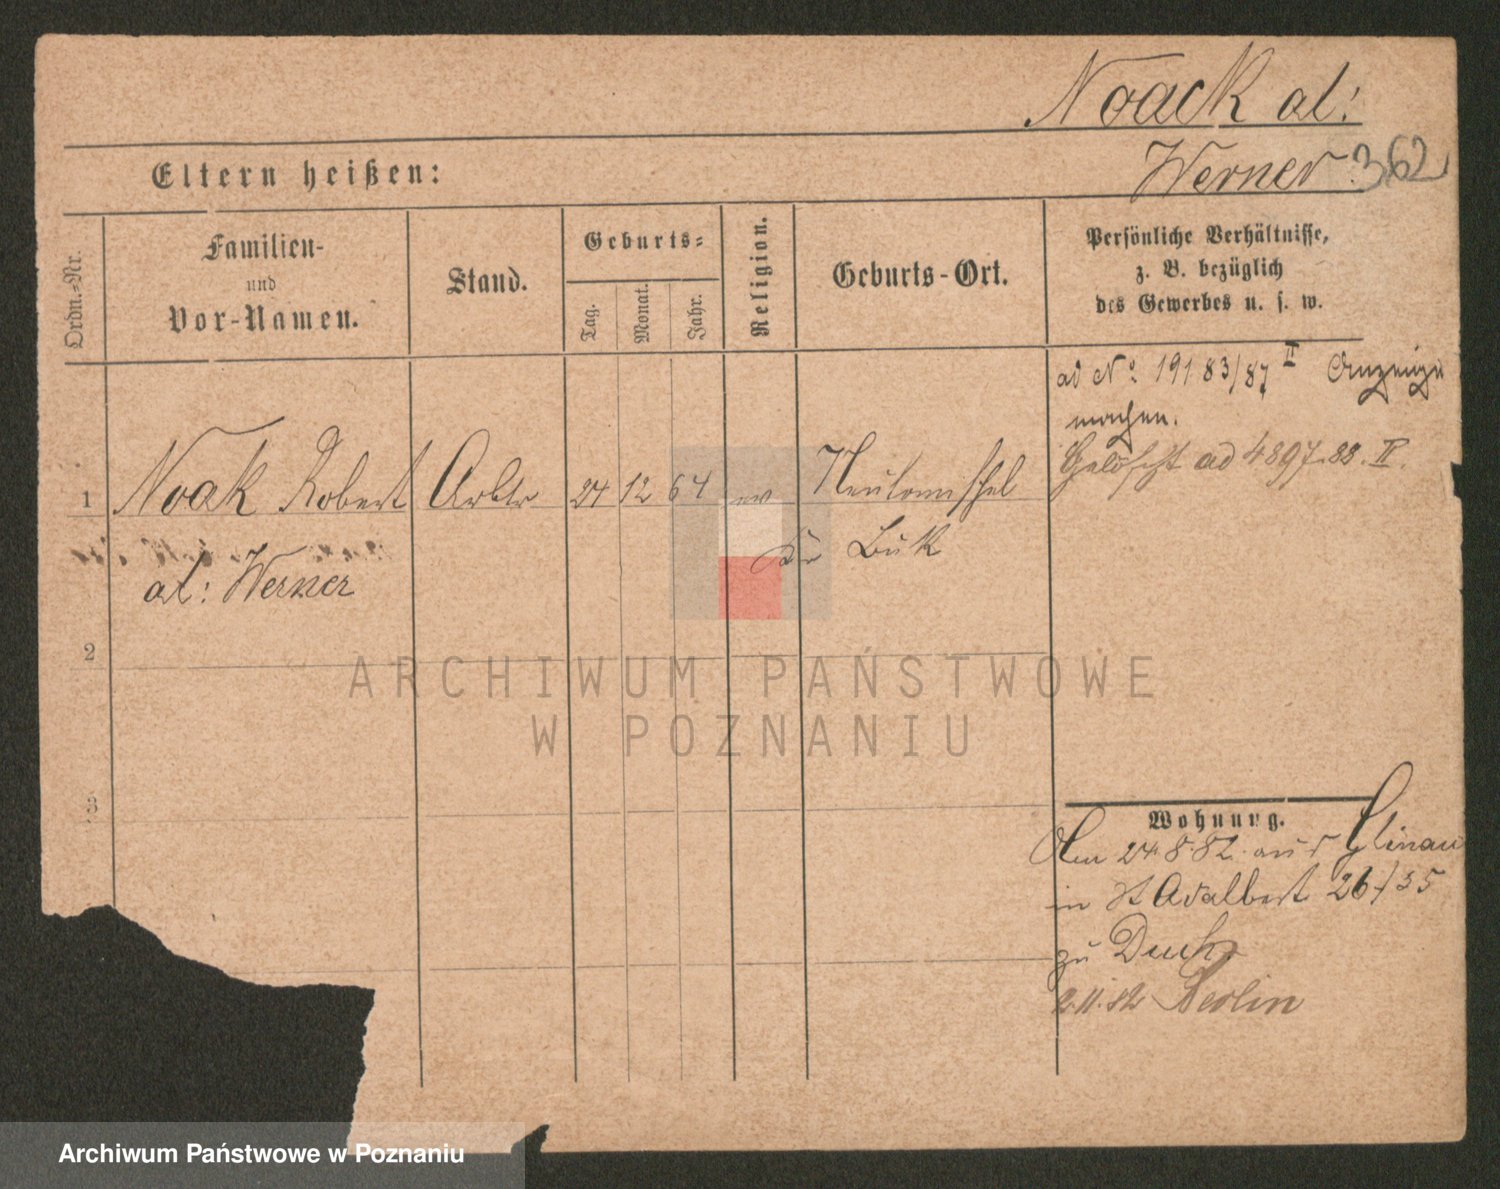 Noack al:
Werner 362
Eltern heißen:
Ordn.-Nr.
Familien-
und
Vor-Namen.
Stand.
Geburts-
Tag.
Monat.
Jahr.
Religion.
Geburts-Ort.
Persönliche Verhältnisse,
z. B. bezüglich
des Gewerbes u. s. w.
ad No 19183/87 II Anzeige
machen.
Gelöscht ad 4897.88. II.
1 Noak Robert Arbtr 24 12 64 ev Neutomischel
Kr Buk
al: Werner
2
3
ARCHIWUM PAŃSTWOWE
W POZNANIU
Wohnung.
Den 24.8.82. aus Glinau
in St Adalbert 26/35
zu
2.11.82 Berlin
Archiwum Państwowe w Poznaniu